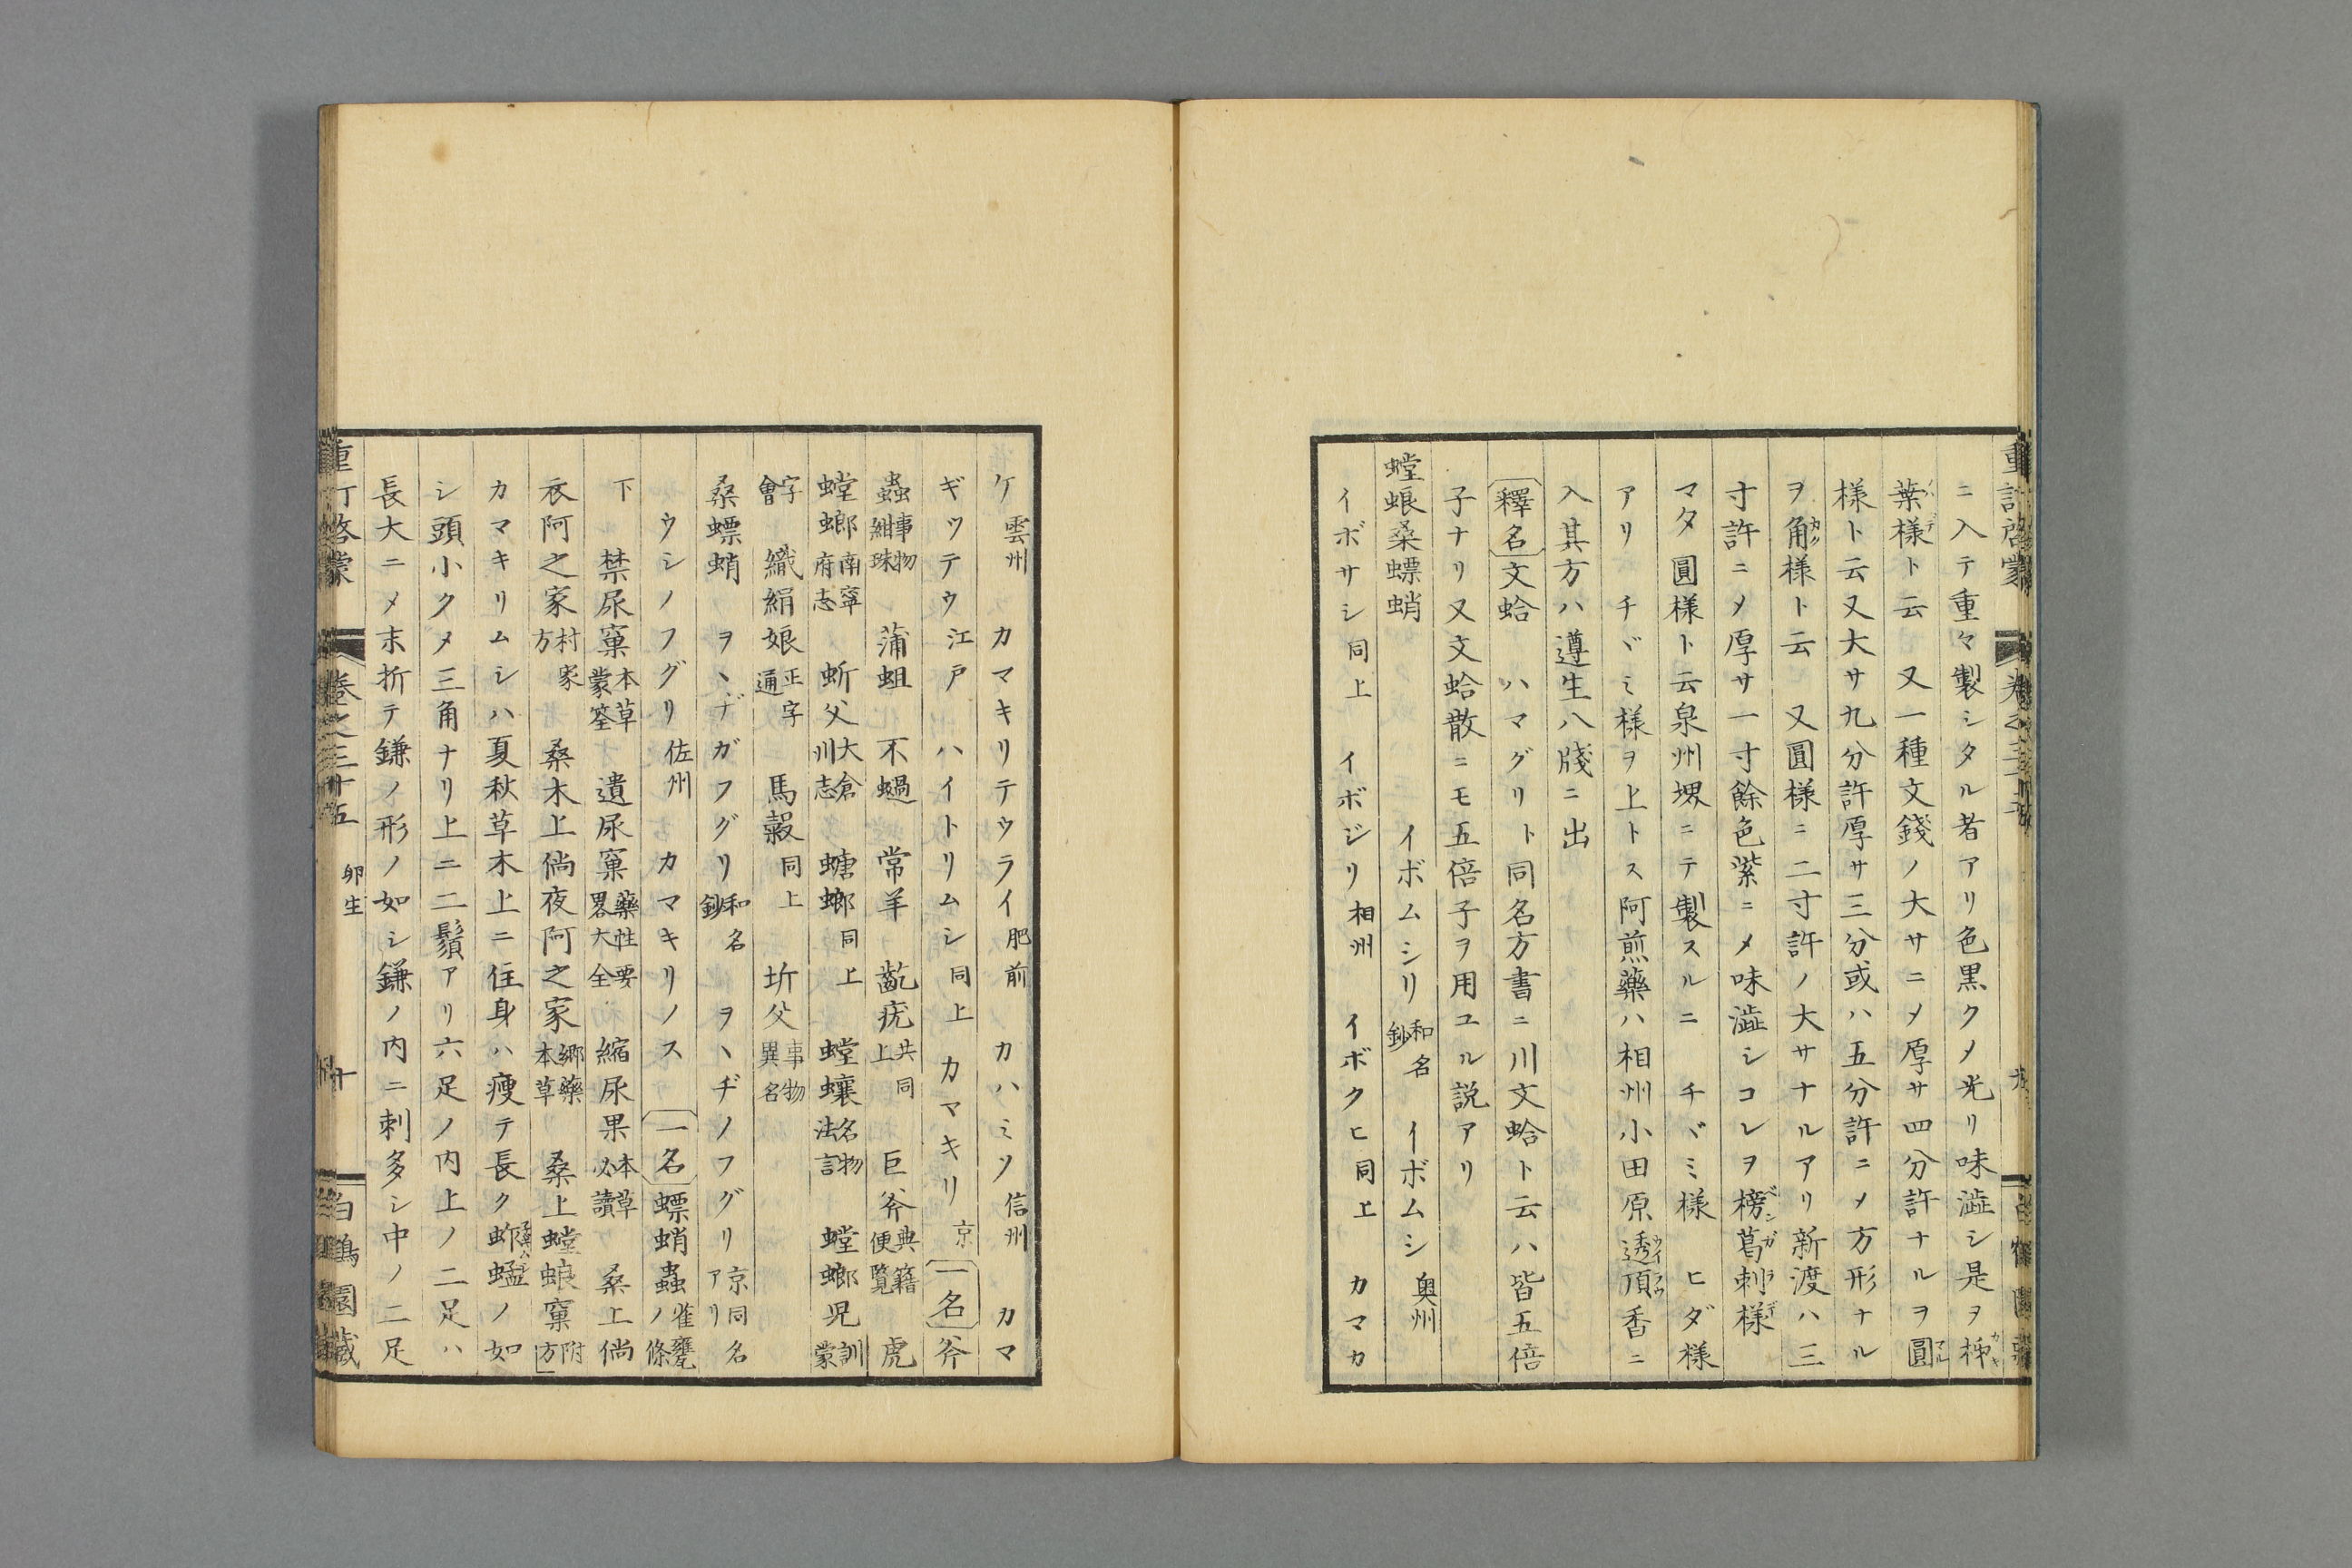 重訂啓蒙　卷之三十五
ニ入テ重々製シタル者アリ色黒クメ光リ味澁シ是ヲ柹
葉様ト云　又一種文錢ノ大サニメ厚サ四分許ナルヲ圓
様ト云又大サ九分許厚サ三分或ハ五分許ニメ方形ナル
ヲ角様ト云　又圓様ニ二寸許ノ大サナルアリ新渡ハ三
寸許ニメ厚サ一寸餘色紫ニメ味澁シコレヲ榜葛刺様
マタ圓様ト云泉州堺ニテ製スルニ　チヾミ様　ヒダ様
アリ　チヾミ様ヲ上トス阿煎藥ハ相州小田原透頂香ニ
入其方ハ遵生八牋ニ出
釋名 文蛤　ハマグリト同名方書ニ川文蛤ト云ハ皆五倍
子ナリ又文蛤散ニモ五倍子ヲ用ユル説アリ
螳蜋桑螵蛸　イボムシリ 和名鈔　イボムシ 奥州
イボサシ 同上　イボジリ 相州　イボクヒ 同上　カマカ
ケ 雲州　カマキリテウライ 肥前　カハミソ 信州　カマ
ギツテウ 江戸　ハイトリムシ 同上　カマキリ 京　一名 斧
蟲 事物紺珠　蒲蛆　不蝸　常羊　齕疣 共同上　巨斧 典籍便覽　虎
螳螂 南寧府志　蚚父 大倉州志　螗螂 同上　螳蠰 名物法言　螳螂児 訓蒙
字會　織絹娘 正字通　馬蝦 同上　圻父 事物異名
桑螵蛸　ヲヽヂガフグリ 和名鈔　ヲヽヂノフグリ 京同名アリ
ウシノフグリ 佐州　カマキリノス　一名 螵蛸蟲 雀甕ノ條
下　禁尿窠 本草蒙筌　遺尿窠 藥性要畧大全　縮尿果 本草必讀　桑上倘
衣阿之家 村家方　桑木上倘夜阿之家 郷藥本草　桑上螳蜋窠 附方
カマキリムシハ夏秋草木上ニ住身ハ痩テ長ク蚱蜢ノ如
シ頭小クメ三角ナリ上ニ二鬚アリ六足ノ内上ノ二足ハ
長大ニメ末折テ鎌ノ形ノ如シ鎌ノ内ニ刺多シ中ノ二足
重訂啓蒙　卷之三十五　卵生　十　白鶴園藏